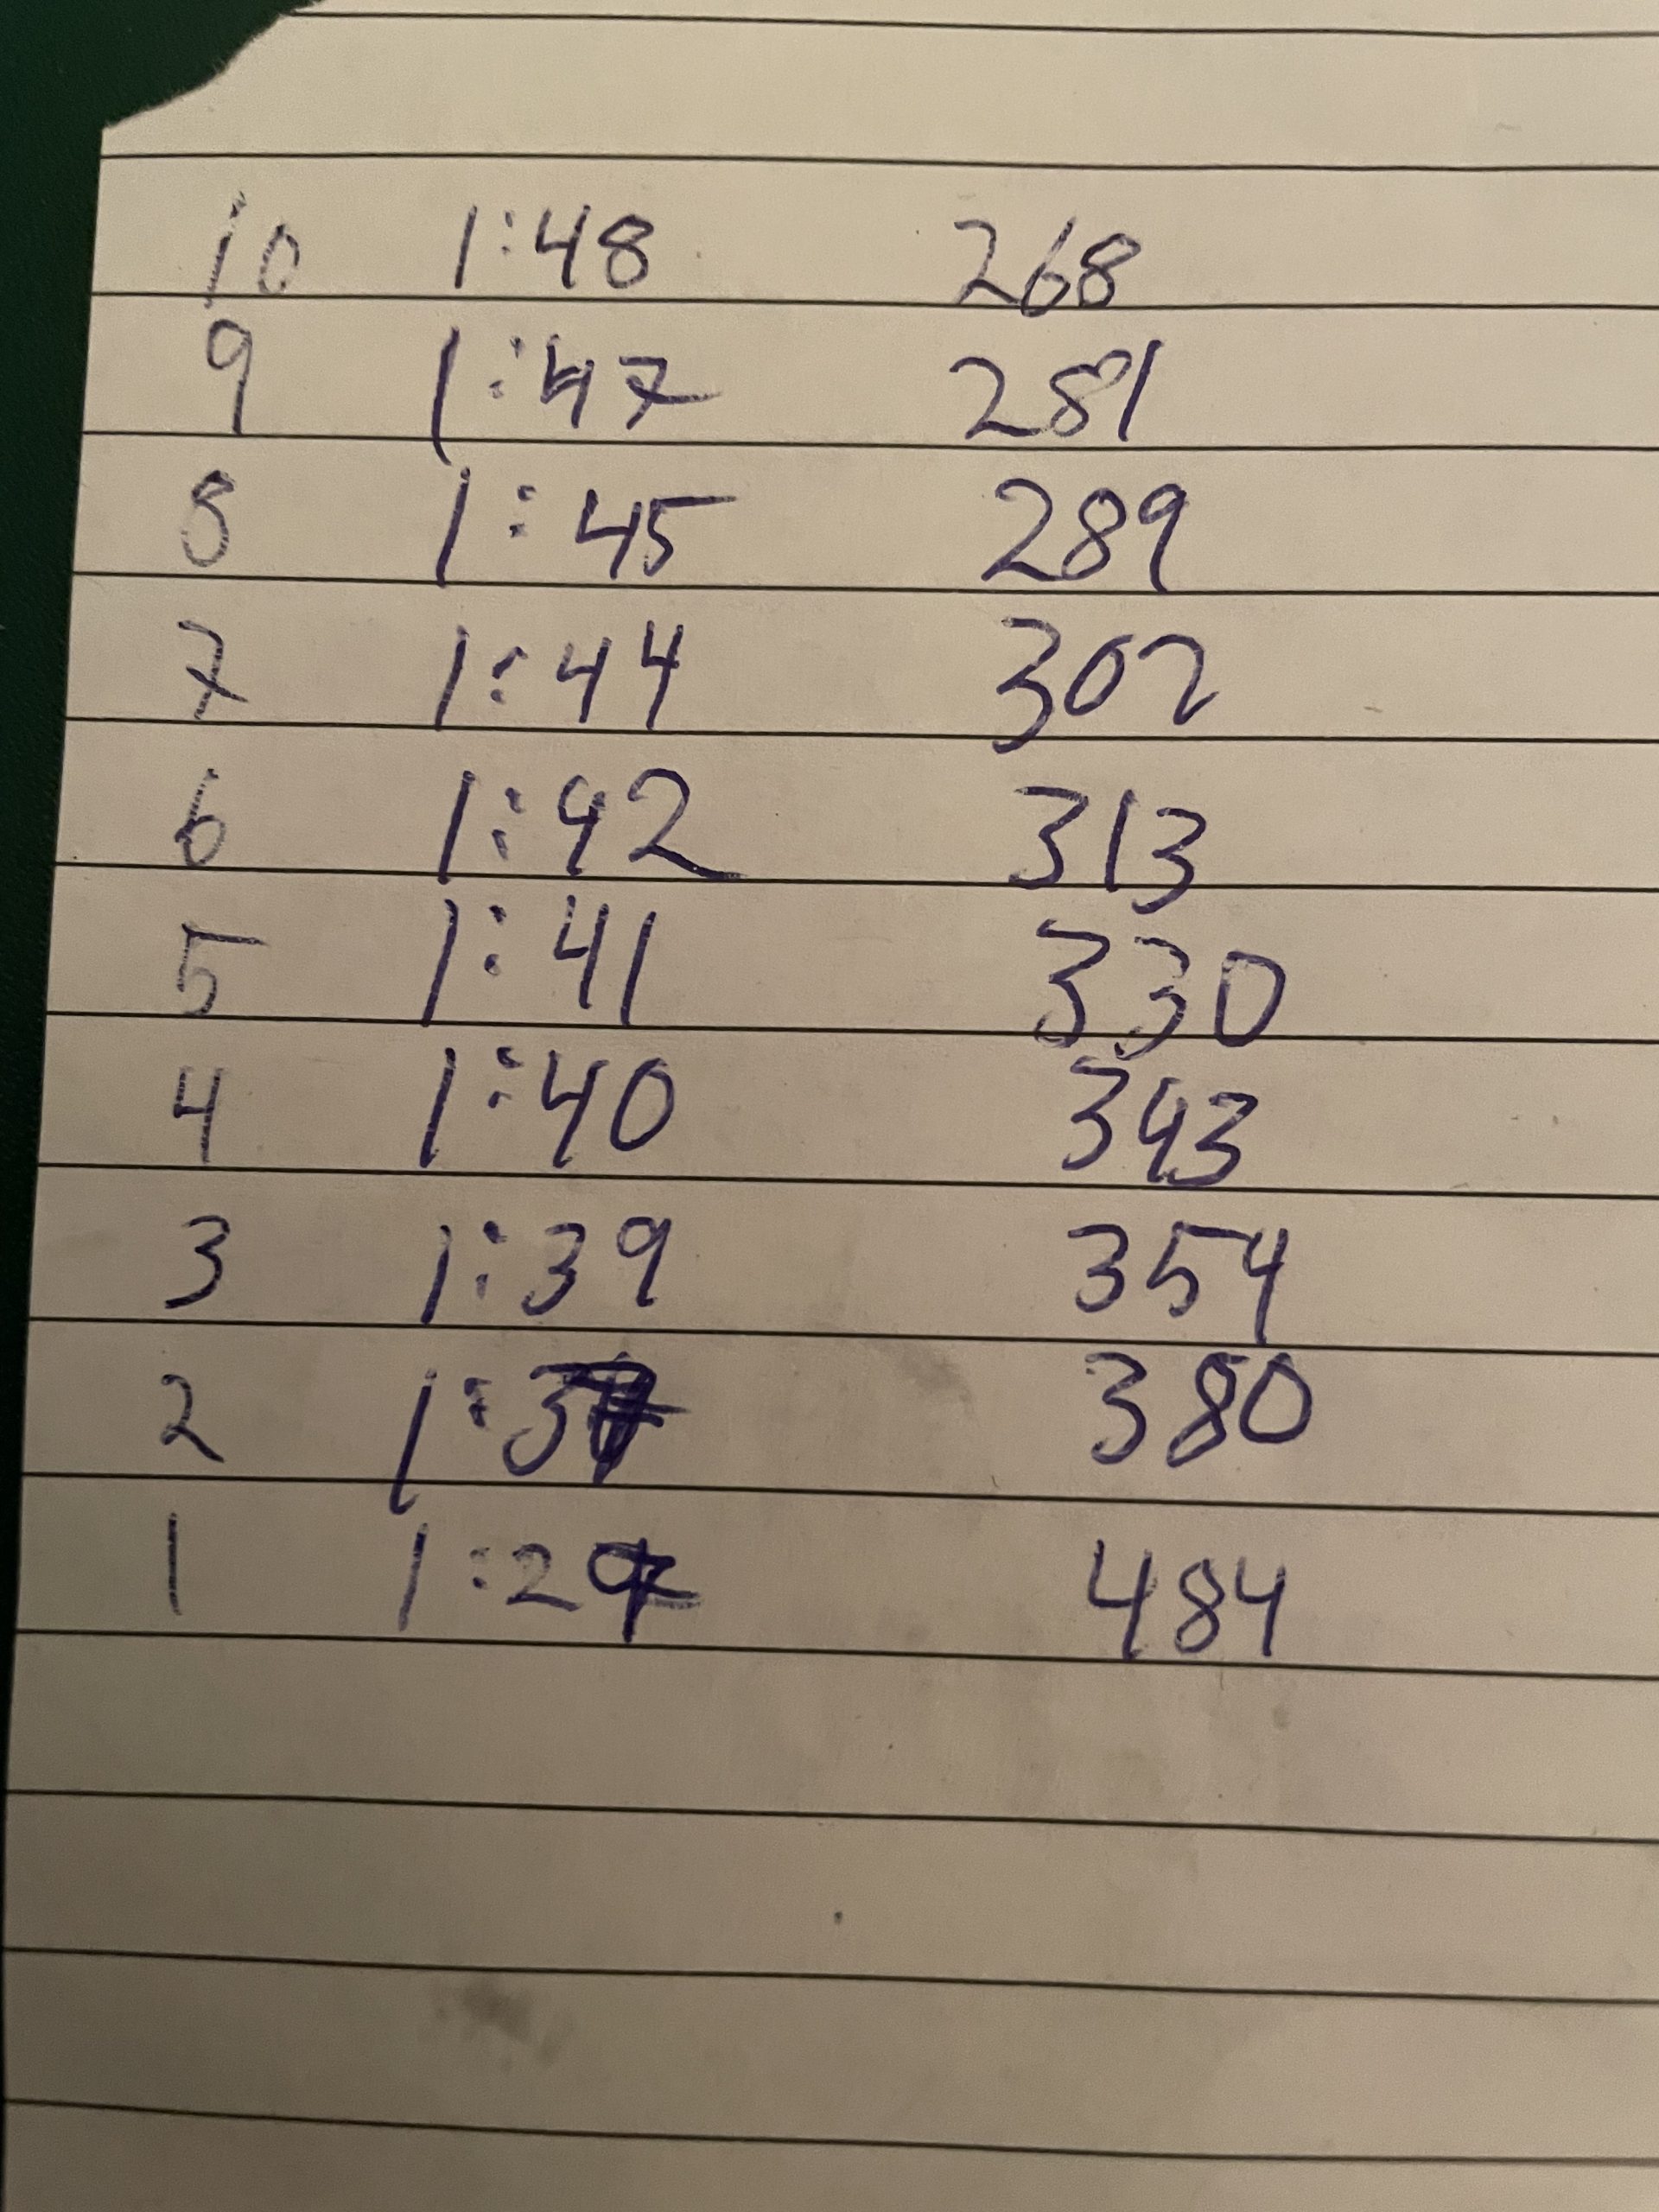 10 1:48 268
9 1:47 281
8 1:45 289
7 1:44 302
6 1:42 313
5 1:41 330
4 1:40 343
3 1:39 354
2 380
1 484